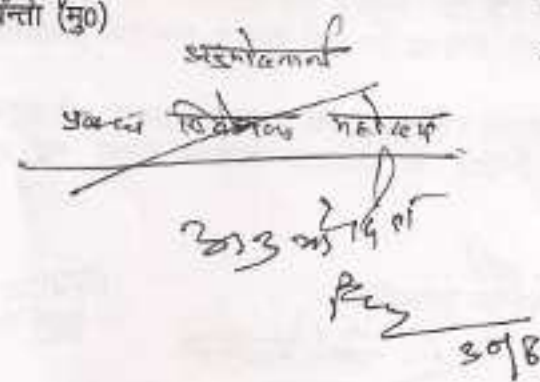 न्ता (मु0)
अनुमोदनार्थ
प्रबन्ध निदेशक महोदय
अनुमोदित